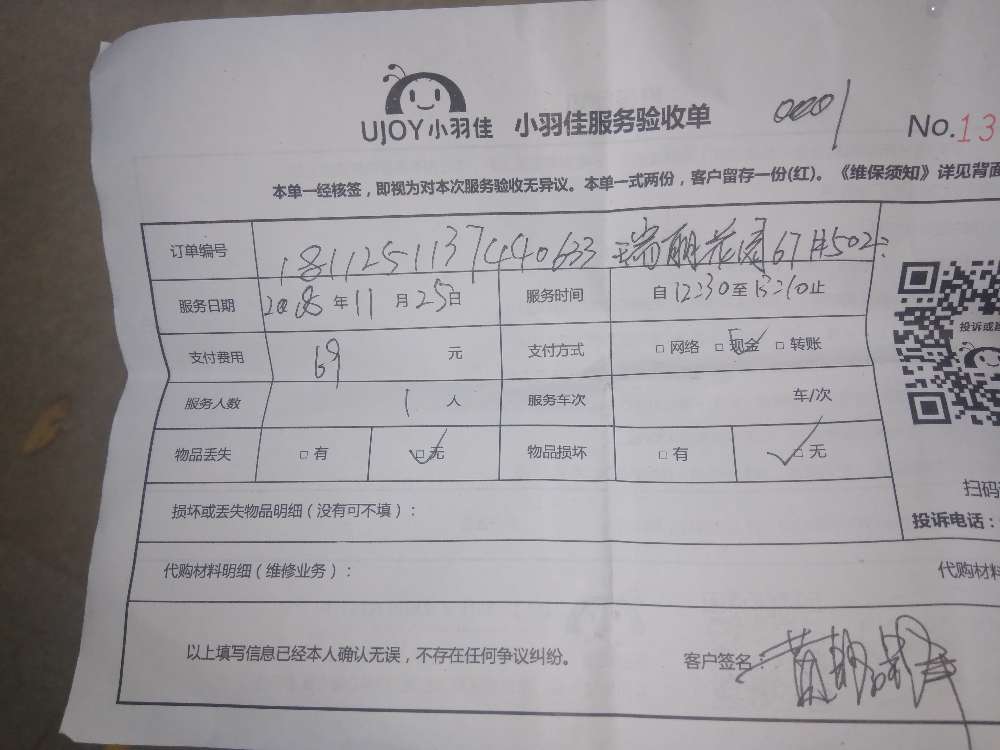 UJOY小羽佳 小羽佳服务验收单 0001 No.13
本单一经核签，即视为对本次服务验收无异议。本单一式两份，客户留存一份(红)。《维保须知》详见背面
订单编号 1811251137440633 瑞丽花园67#502
服务日期 2018年11月25日 服务时间 自12:30至13:10止
支付费用 69 元 支付方式 □网络 □现金 □转账
服务人数 1 人 服务车次 车/次
物品丢失 □有 □无 物品损坏 □有 □无
损坏或丢失物品明细（没有可不填）：
代购材料明细（维修业务）： 代购材料
以上填写信息已经本人确认无误，不存在任何争议纠纷。 客户签名：
投诉或
扫码
投诉电话：